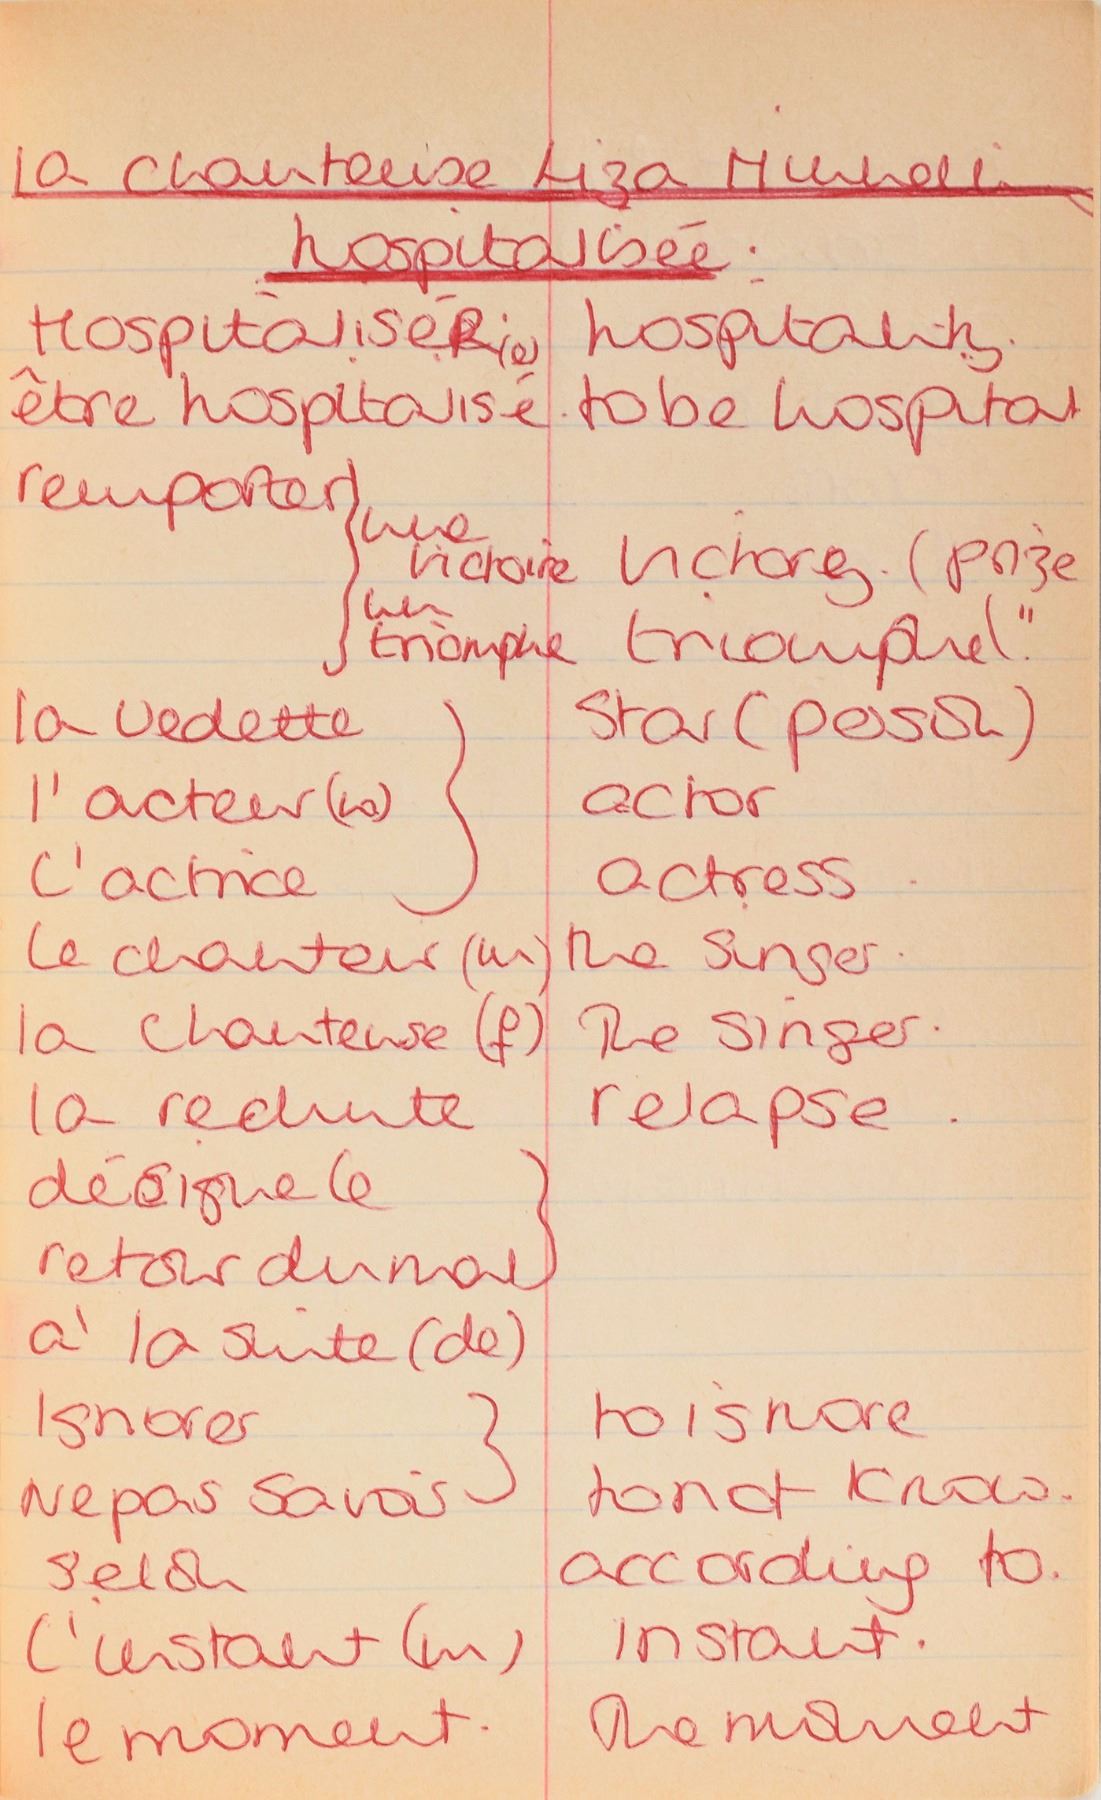 la chanteuse Liza Minnelli
hospitalisée.
Hospitaliser (e) hospitality.
être hospitalisé. to be hospital
remporter
une
victoire victory. (prize
un
triomphe triomphe(."
la vedette star (person)
l'acteur (m) actor
l'actrice actress
le chanteur (m) the singer.
la chanteuse (f) The singer.
la rechute relapse.
désigne le
retour du mal
à la suite (de)
Ignorer to ignore
Ne pas savoir to not know.
selon according to.
l'instant (m) instant.
le moment. The moment